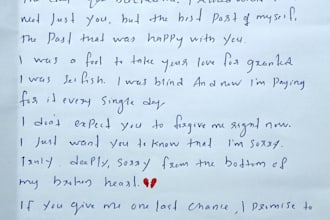 not just you, but the best part of myself.
The Part that was happy with you.
I was a fool to take your love for granted
I was selfish. I was blind And now I'm paying
for it every single day,
I don't expect you to forgive me right now.
I Just want you to know that I'm sorry.
Truly, deeply, sorry from the bottom of
my broken heart. 💔
If you give me one last chance, I promise to